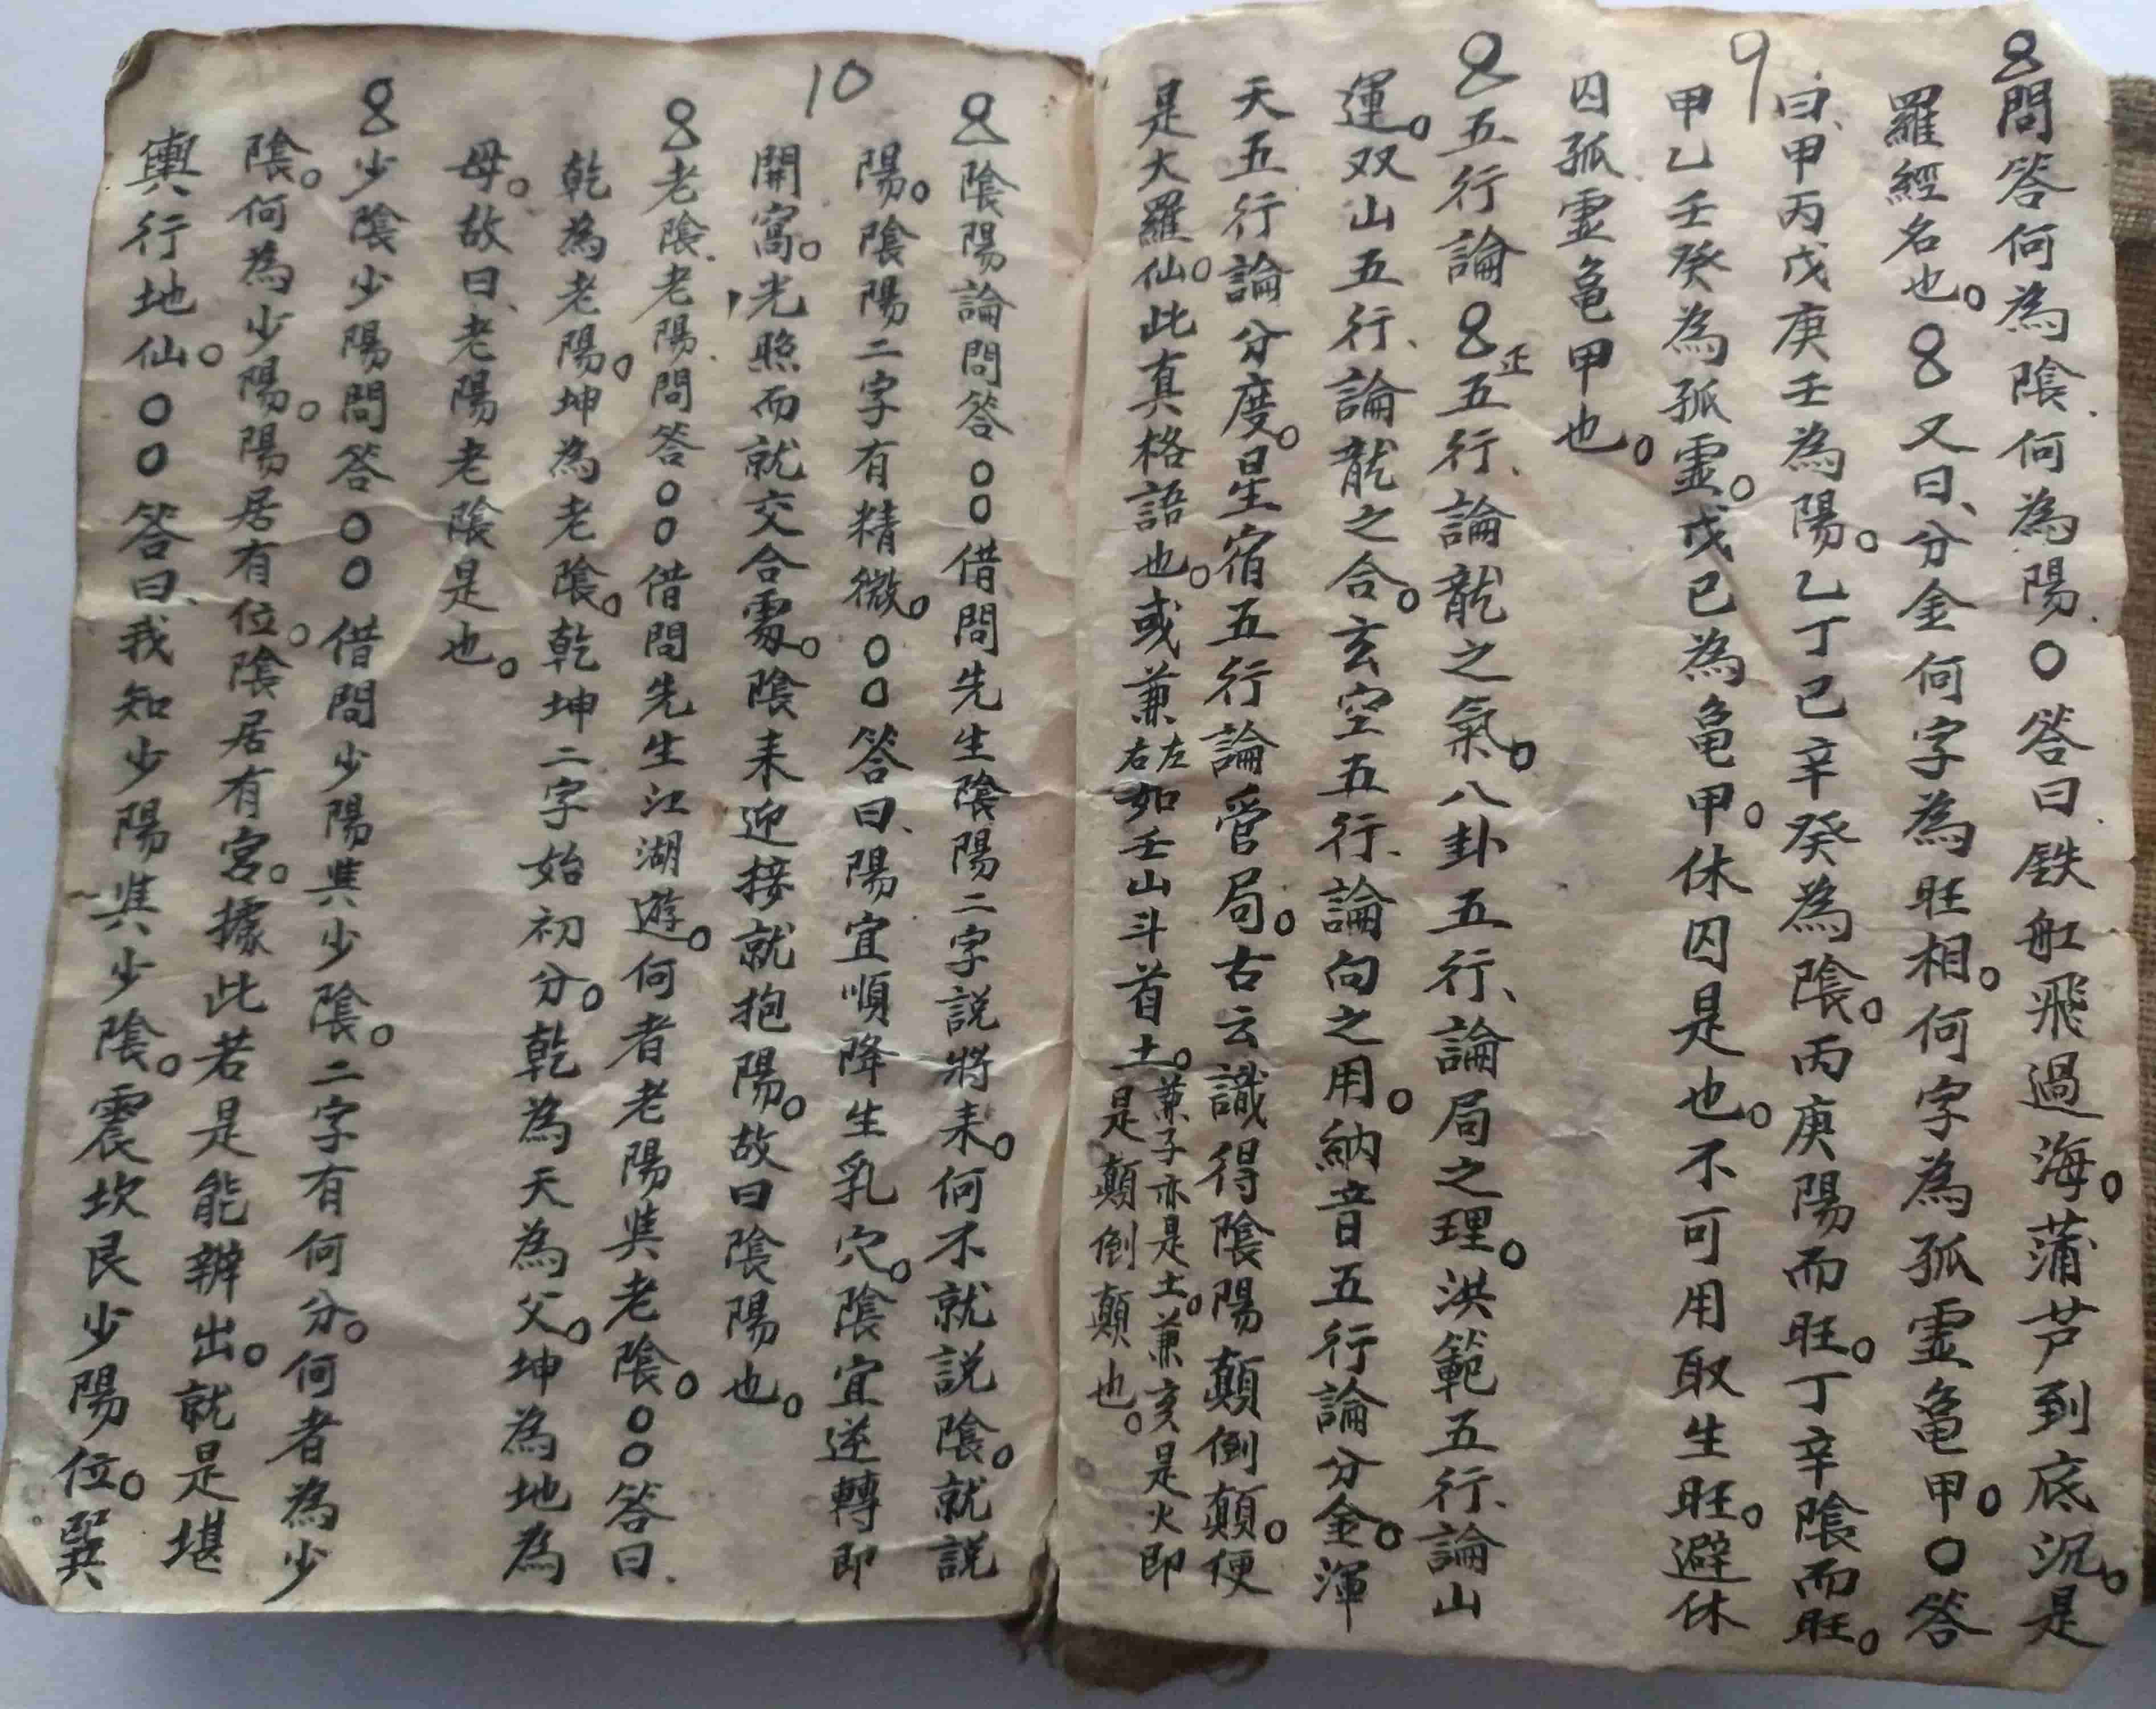 9
8問答何為陰.何為陽.○答曰鉄舡飛過海。蒲芦到底沉。是
羅經名也。8又曰、分金何字為旺相。何字為孤霊亀甲。○答
曰、甲丙戊庚壬為陽。乙丁己辛癸為陰。丙庚陽而旺。丁辛陰而旺。
甲乙壬癸為孤霊。戊己為亀甲。休囚是也。不可用取生旺。避休
囚孤霊亀甲也。
8五行論8正五行、論龍之氣。八卦五行、論局之理。洪範五行、論山
運。双山五行、論龍之合。玄空五行、論向之用。納音五行論分金。渾
天五行論分度。星宿五行論管局。古云識得陰陽顛倒顛。便
是大羅仙。此真格語也。或兼左右如壬山斗首土。兼子亦是土。兼亥是火即
是顛倒顛也。
10
8陰陽論問答○○借問先生陰陽二字説將来。何不就説陰。就説
陽。陰陽二字有精微。○○答曰、陽宜順降生乳穴。陰宜逆轉即
開窩。光照而就交合䨇。陰来迎接就抱陽。故曰陰陽也。
8老陰.老陽.問答○○借問先生江湖遊。何者老陽與老陰。○○答曰.
乾為老陽。坤為老陰。乾坤二字始初分。乾為天為父。坤為地為
母。故曰、老陽老陰是也。
8少陰少陽問答○○借問少陽與少陰。二字有何分。何者為少
陰。何為少陽。陽居有位。陰居有宮。據此若是能辦出。就是堪
輿行地仙。○○答曰、我知少陽與少陰。震坎艮少陽位。巽